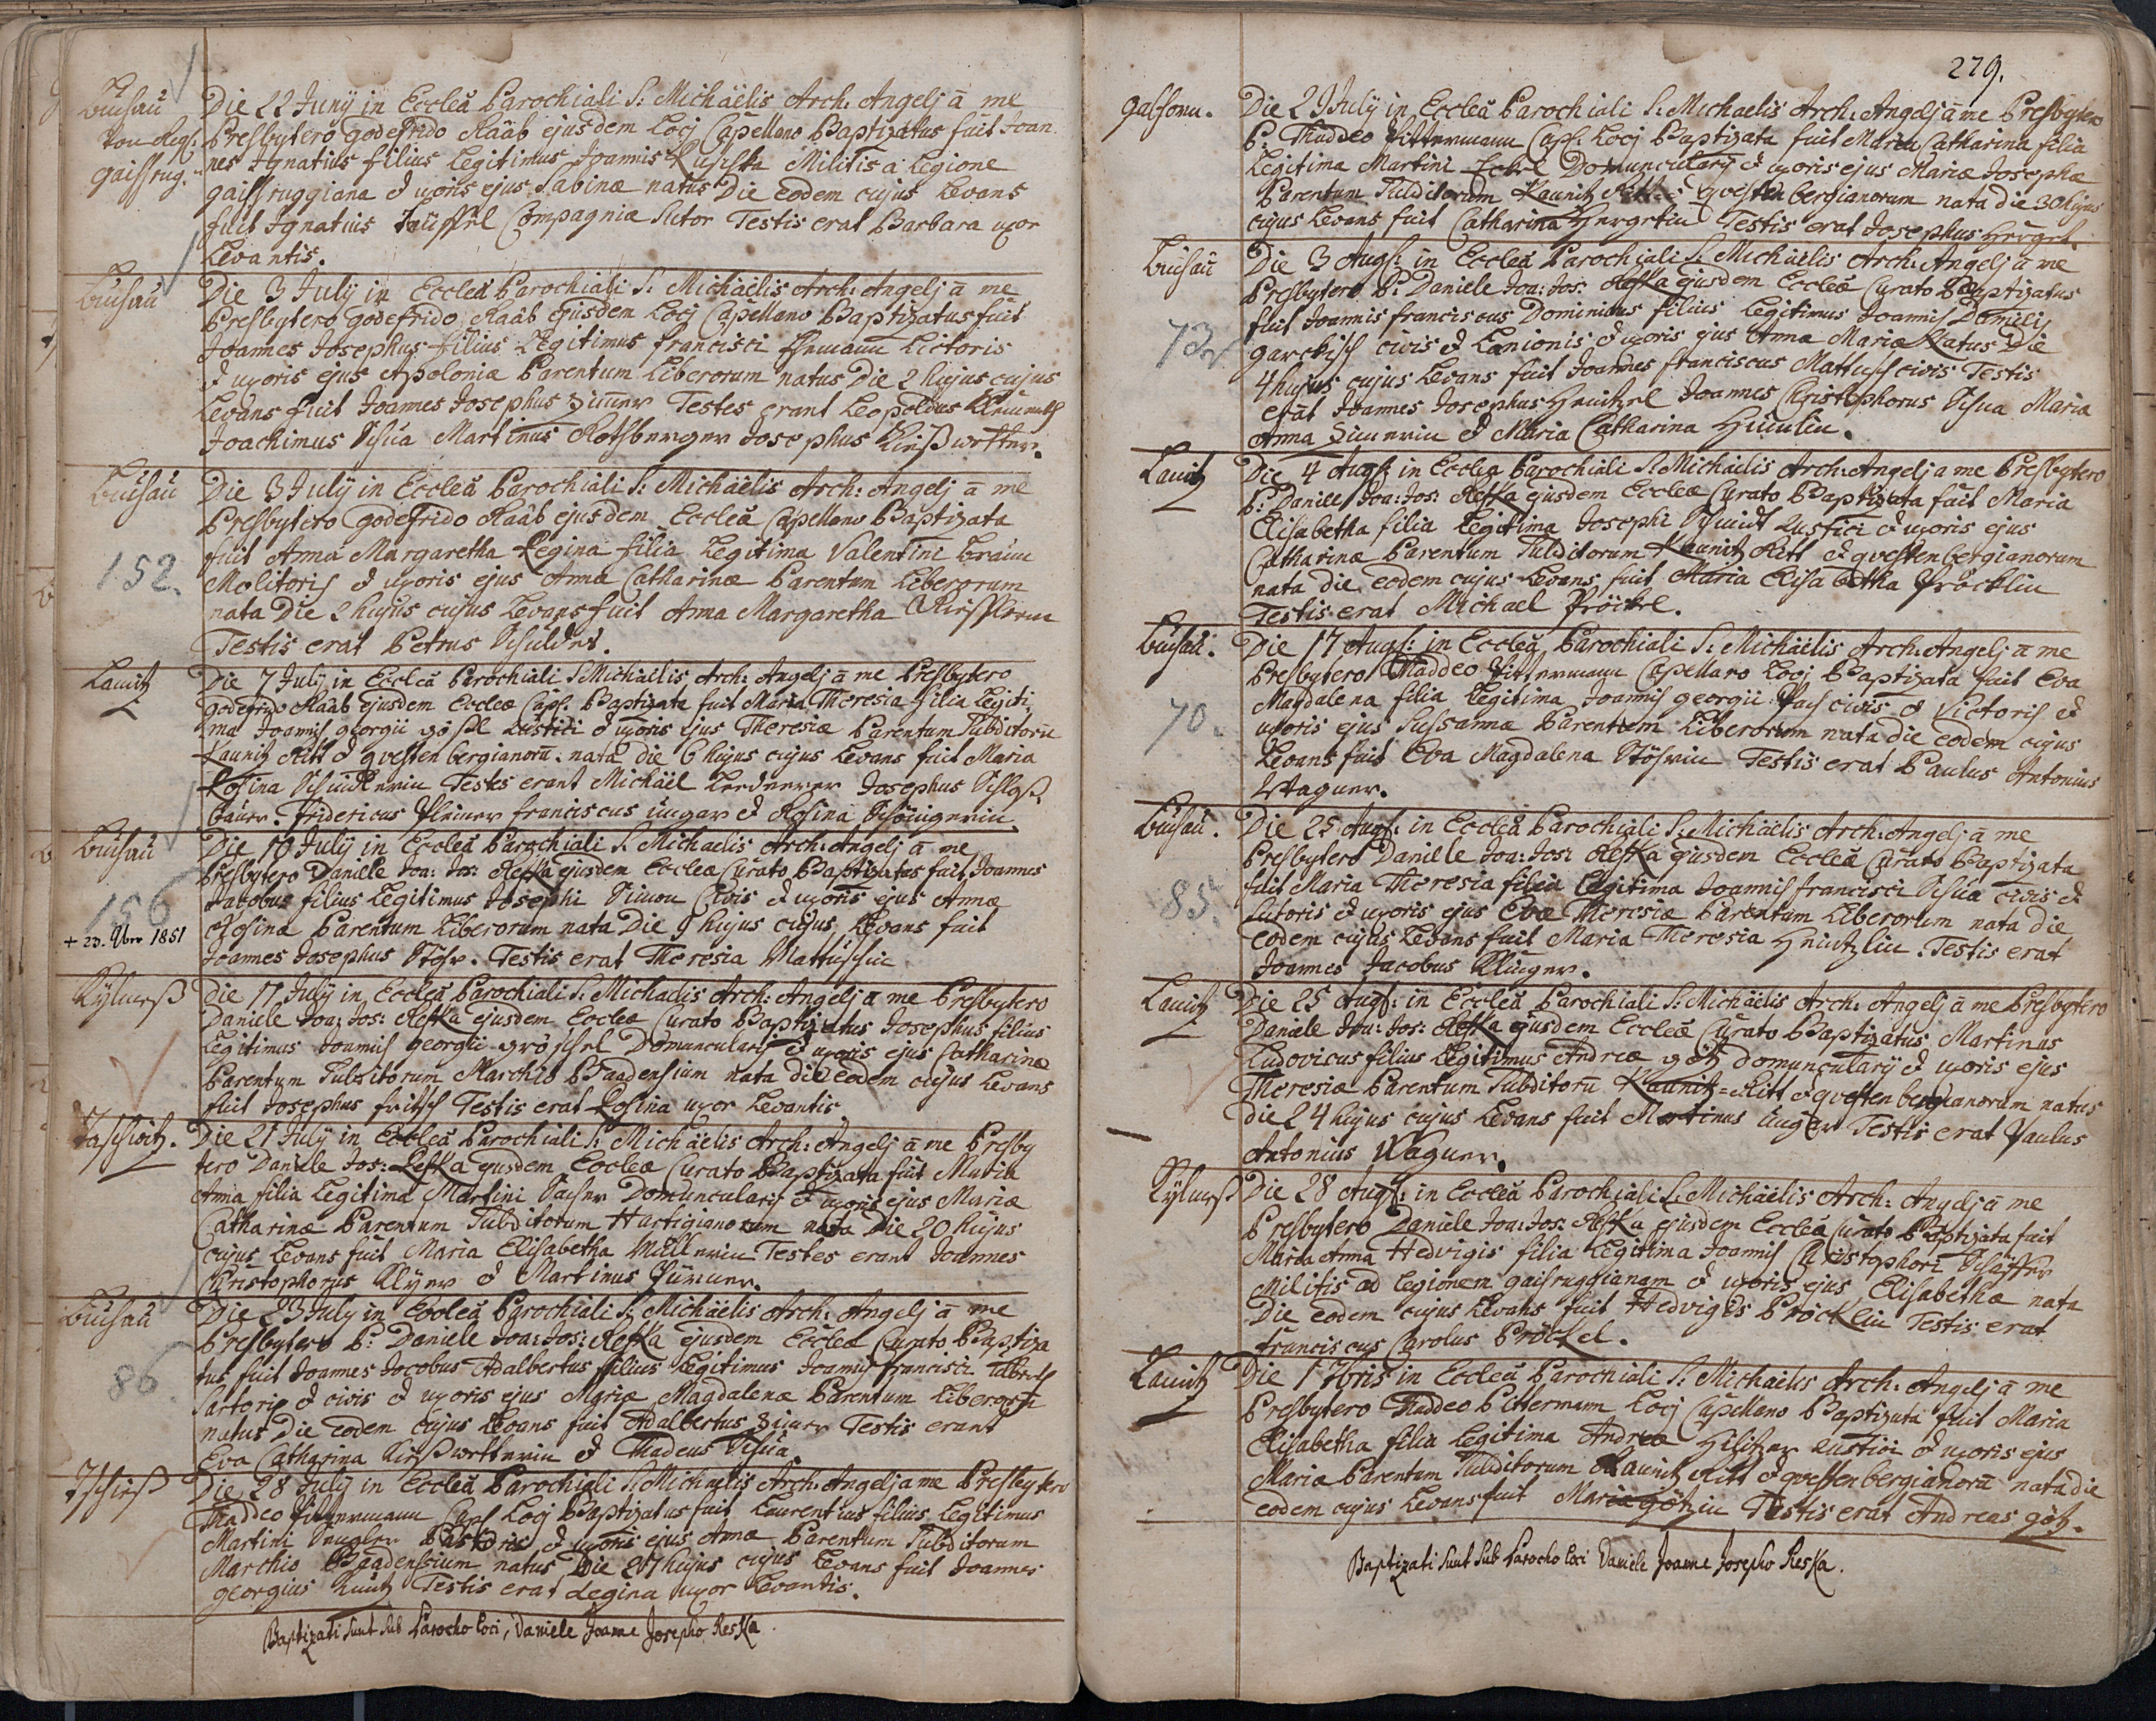 Buchau
von Regi:
gaisrug:
Die 22 Junij in Eccleâ Parochiali S: Michäelis Arch: Angelj ā me
Presbytero godefrido Raab ejusdem Locj Capellano Baptizatus fuit Joan
nes Ignatius filius Legitimus Joannis Militis a Legione
gaissruggiana & uxoris ejus Sabinæ natus Die eodem cujus Levans
fuit Ignatius Compagniæ Sutor Testis erat Barbara uxor
Levantis.
Buchau
Die 3 July in Eccleâ Parochiali S: Michäelis Arch: Angelj ā me
Presbytero godefrido Raab ejusdem Locj Capellano Baptizatus fuit
Joannes Josephus filius Legitimus francisci Lictoris
& uxoris ejus Apoloniæ Parentum Liberorum natus Die 2 hujus cujus
Levans fuit Joannes Josephus Testes erant Leopoldus
Joachimus Martinus Josephus
Buchau
152.
Die 3 July in Eccleâ Parochiali S: Michäelis Arch: Angelj ā me
Presbytero godefrido Raab ejusdem Eccleâ Capellano Baptizata
fuit Anna Margaretha Regina filia Legitima Valentini
Molitoris & uxoris ejus Annæ Catharinæ Parentum Liberorum
nata Die 2 hujus cujus Levans fuit Anna Margaretha
Testis erat Petrus
Lauitz
Die 7 July in Eccleâ Parochiali S Michäelis Arch: Angelj ā me Presbytero
godefrido Raab ejusdem Eccleæ Cap: Baptizata fuit Maria Theresia filia Legiti
ma Joannis georgii Rustici & uxoris ejus Theresiæ Parentum Subditorū
Kaunitz Ritt & questenbergianorū: nata die 6 hujus cujus Levans fuit Maria
Rosina Testes erant Michäel Josephus
Fridericus franciscus ungar & Rosina
Buchau
156
+ 23. 9bro 1851
Die 10 July in Eccleâ Parochiali S. Michaelis Arch: Angelj ā me
Presbytero Daniele Joa: Jos: Reska ejusdem Eccleæ Curato Baptizatus fuit Joannes
Jacobus filius Legitimus Josephi Simon Civis & uxoris ejus Annæ
Rosinæ Parentum Liberorum nata Die 9 hujus cujus Levans fuit
Joannes Josephus Stöhr. Testis erat Theresia Mattuschin
Die 17 July in Eccleâ Parochiali S: Michaelis Arch: Angelj ā me Presbytero
Daniele Joa: Jos: Reska ejusdem Eccleæ Curato Baptizatus Josephus filius
Legitimus Joannis georgii gröschel Domuncularis & uxoris ejus Catharinæ
Parentum Subditorum Marchio Baadensium nata die eodem cujus Levans
fuit Josephus fritsch Testis erat Rosina uxor Levantis
Die 21 July in Eccleâ Parochiali S: Michäelis Arch: Angelj ā me Presby
tero Daniele Jos: Reska ejusdem Eccleæ Curato Baptizata fuit Maria
Anna filia Legitima Martini Domuncularis & uxoris ejus Mariæ
Catharinæ Parentum Subditorum Hartigianorum nata Die 20 hujus
cujus Levans fuit Maria Elisabetha Müllerin Testes erant Joannes
Christophorus & Martinus
Buchau
86
Die 23 July in Eccleâ Parochiali S: Michäelis Arch: Angelj ā me
Presbytero P: Daniele Joa: Jos: Reska ejusdem Eccleæ Curato Baptiza
tus fuit Joannes Jocobus Adalbertus filius Legitimus Joannis francisci
Sartoris & civis & uxoris ejus Mariæ Magdalenæ Parentum Liberorū
natus Die eodem cujus Levans fuit Adalbertus Testis erant
Eva Catharina & Thadeus
Die 28 July in Eccleâ Parochiali S: Michaelis Arch: Angelj a me Presbytero
Thaddeo Pittermann Cap: Locj Baptizatus fuit Laurentius filius Legitimus
Martini Pastoris & uxoris ejus Annæ Parentum Subditorum
Marchio Baadensium natus Die 27 hujus cujus Levans fuit Joannes
georgius Testis erat Regina uxor Levantis.
Baptizati sunt Sub Parocho Loci, Daniele Joanne Josepho Reska
279.
Die 29 July in Eccleâ Parochiali S: Michaelis Arch: Angelj ā me Presbytero
P: Thaddeo Pittermann Cap: Locj Baptizata fuit Maria Catharina filia
Legitima Martini Domuncularij & uxoris ejus Mariæ Josephæ
Parentum Subditorum Kaunitz & questenbergianorum nata die 30 hujus
cujus Levans fuit Catharina Testis erat Josephus
Buchau
73
Die 3 Augs: in Eccleâ Parochiali S: Michäelis Arch: Angelj ā me
Presbytero P: Daniele Joa: Jos: Reska ejusdem Eccleâ Curato Baptizatus
fuit Joannis franciscus Dominicus filius Legitimus Joannis Danielis
civis & Lanionis & uxoris ejus Annæ Mariæ Natus Die
4 hujus cujus Levans fuit Joannes franciscus Mattusch civis Testis
erat Joannes Josephus Joannes Christophorus Maria
Anna & Maria Catharina
Lauitz
Die 4 Augs: in Eccleâ Parochiali S: Michäelis Arch: Angelj a me Presbytero
P: Daniele Joa: Jos: Reska ejusdem Eccleæ Curato Baptizata fuit Maria
Elisabetha filia Legitima Josephi Schmidt Rustici & uxoris ejus
Catharinæ Parentum Subditorum Kaunitz Ritt & questenbergianorum
nata die eodem cujus Levans fuit Maria Elisabetha Pröcklin
Testis erat Michael Pröckel.
Buchau.
70.
Die 17 Augs: in Eccleâ Parochiali S: Michäelis Arch: Angelj ā me
Presbytero Thaddeo Pittermann Capellano Locj Baptizata fuit Eva
Magdalena filia Legitima Joannis georgii civis & Victoris &
uxoris ejus Sussannæ Parentum Liberorum nata die eodem cujus
Levans fuit Eva Magdalena Stöhrin Testis erat Paulus Antonius
Wagner.
Buchau.
85.
Die 25 Augs: in Eccleâ Parochiali S: Michäelis Arch: Angelj ā me
Presbytero Daniele Joa: Jos: Reska ejusdem Eccleâ Curato Baptizata
fuit Maria Theresia filia Legitima Joannis francisci civis &
Sutoris & uxoris ejus Evæ Theresiæ Parentum Liberorum nata die
eodem cujus Levans fuit Maria Theresia Testis erat
Joannes Jacobus Klinger.
Lauitz
Die 25 Augs: in Eccleâ Parochiali S: Michäelis Arch: Angelj ā me Presbytero
Daniele Joa: Jos: Reska ejusdem Eccleâ Curato Baptizatus Martinus
Ludovicus filius Legitimus Andreæ götz domuncularij & uxoris ejus
Theresiæ Parentum Subditorū Kaunitz=Ritt & questenbergianorum natus
die 24 hujus cujus Levans fuit Martinus Ungar Testis erat Paulus
Antonius Wagner.
Die 28 Augs: in Eccleâ Parochiali S: Michäelis Arch: Angelj ā me
Presbytero Daniele Joa: Jos: Reska ejusdem Eccleâ Curato Baptizata fuit
Maria Anna Hedvigis filia Legitima Joannis Christophori Schäffer
Militis ad Legionem gaisruggianam & uxoris ejus Elisabethæ nata
Die eodem cujus Levans fuit Hedvigis Pröcklin Testis erat
franciscus Carolus Pröckel.
Lauitz
Die 1 7bris in Eccleâ Parochiali S: Michäelis Arch: Angelj ā me
Presbytero Thaddeo Pittermann Locj Capellano Baptizata fuit Maria
Elisabetha filia Legitima Andreæ Hilitzer Rustici & uxoris ejus
Mariæ Parentum Subditorum Kaunitz Ritt & questenbergianorū nata die
eodem cujus Levans fuit Maria götzin Testis erat Andreas götz.
Baptizati sunt Sub Parocho Loci Daniele Joanne Josepho Reska.